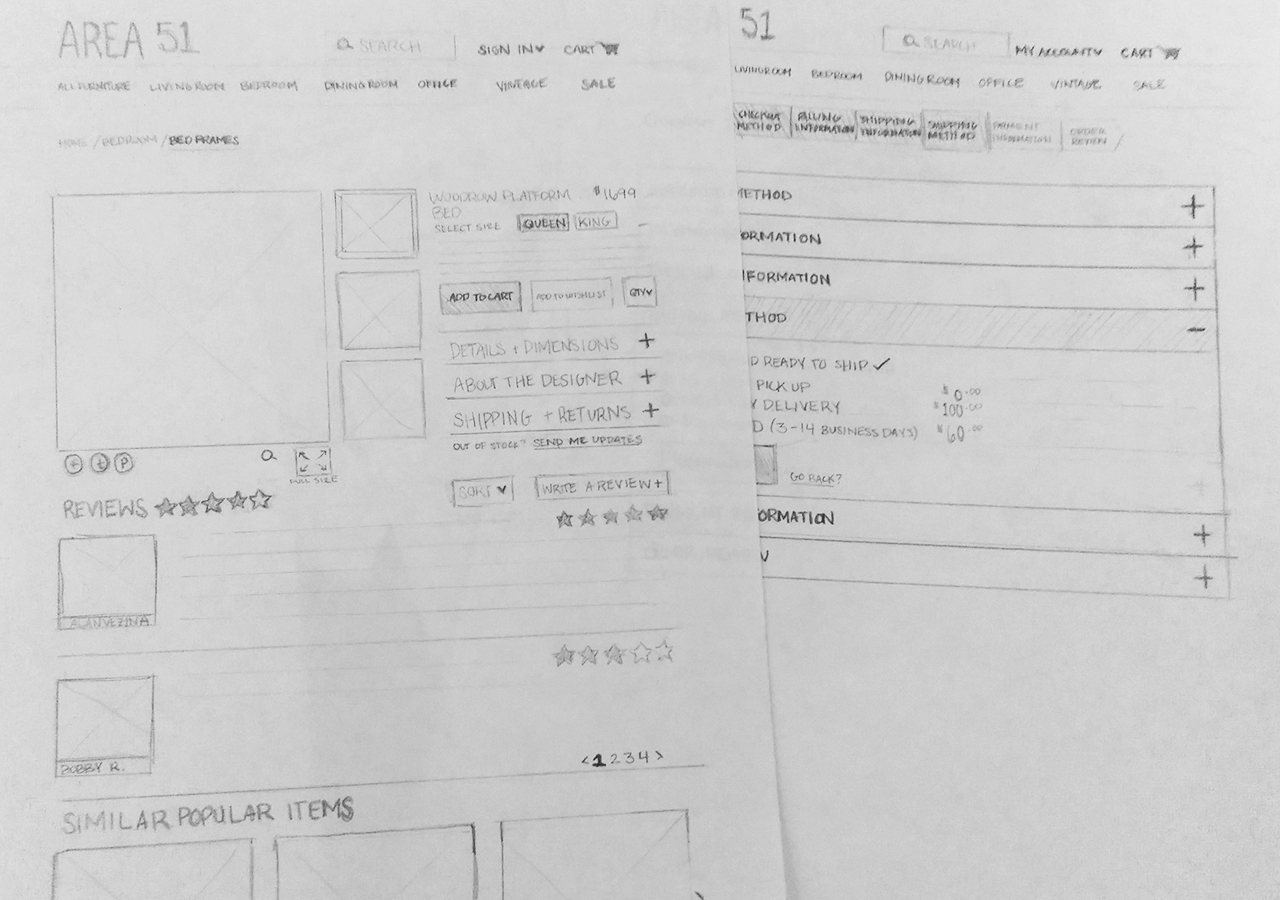 AREA 51
SEARCH
SIGN IN
CART
ALL FURNITURE LIVING ROOM BEDROOM DINING ROOM OFFICE VINTAGE SALE
HOME / BEDROOM / BED FRAMES
WOODROW PLATFORM BED
$1699
SELECT SIZE QUEEN KING
ADD TO CART ADD TO WISHLIST QTY
DETAILS + DIMENSIONS +
ABOUT THE DESIGNER +
SHIPPING + RETURNS +
OUT OF STOCK? SEND ME UPDATES
FULL SIZE
SORT WRITE A REVIEW +
REVIEWS
BOBBY R.
< 1 2 3 4 >
SIMILAR POPULAR ITEMS
51
SEARCH
MY ACCOUNT
CART
LIVING ROOM BEDROOM DINING ROOM OFFICE VINTAGE SALE
CHECKOUT METHOD
BILLING INFORMATION
SHIPPING INFORMATION
SHIPPING METHOD
PAYMENT INFORMATION
ORDER REVIEW
METHOD +
ORMATION +
NFORMATION +
THOD −
D READY TO SHIP ✓
PICK UP $0.00
Y DELIVERY $100.00
D (3-14 BUSINESS DAYS) $60.00
GO BACK?
ORMATION +
W +